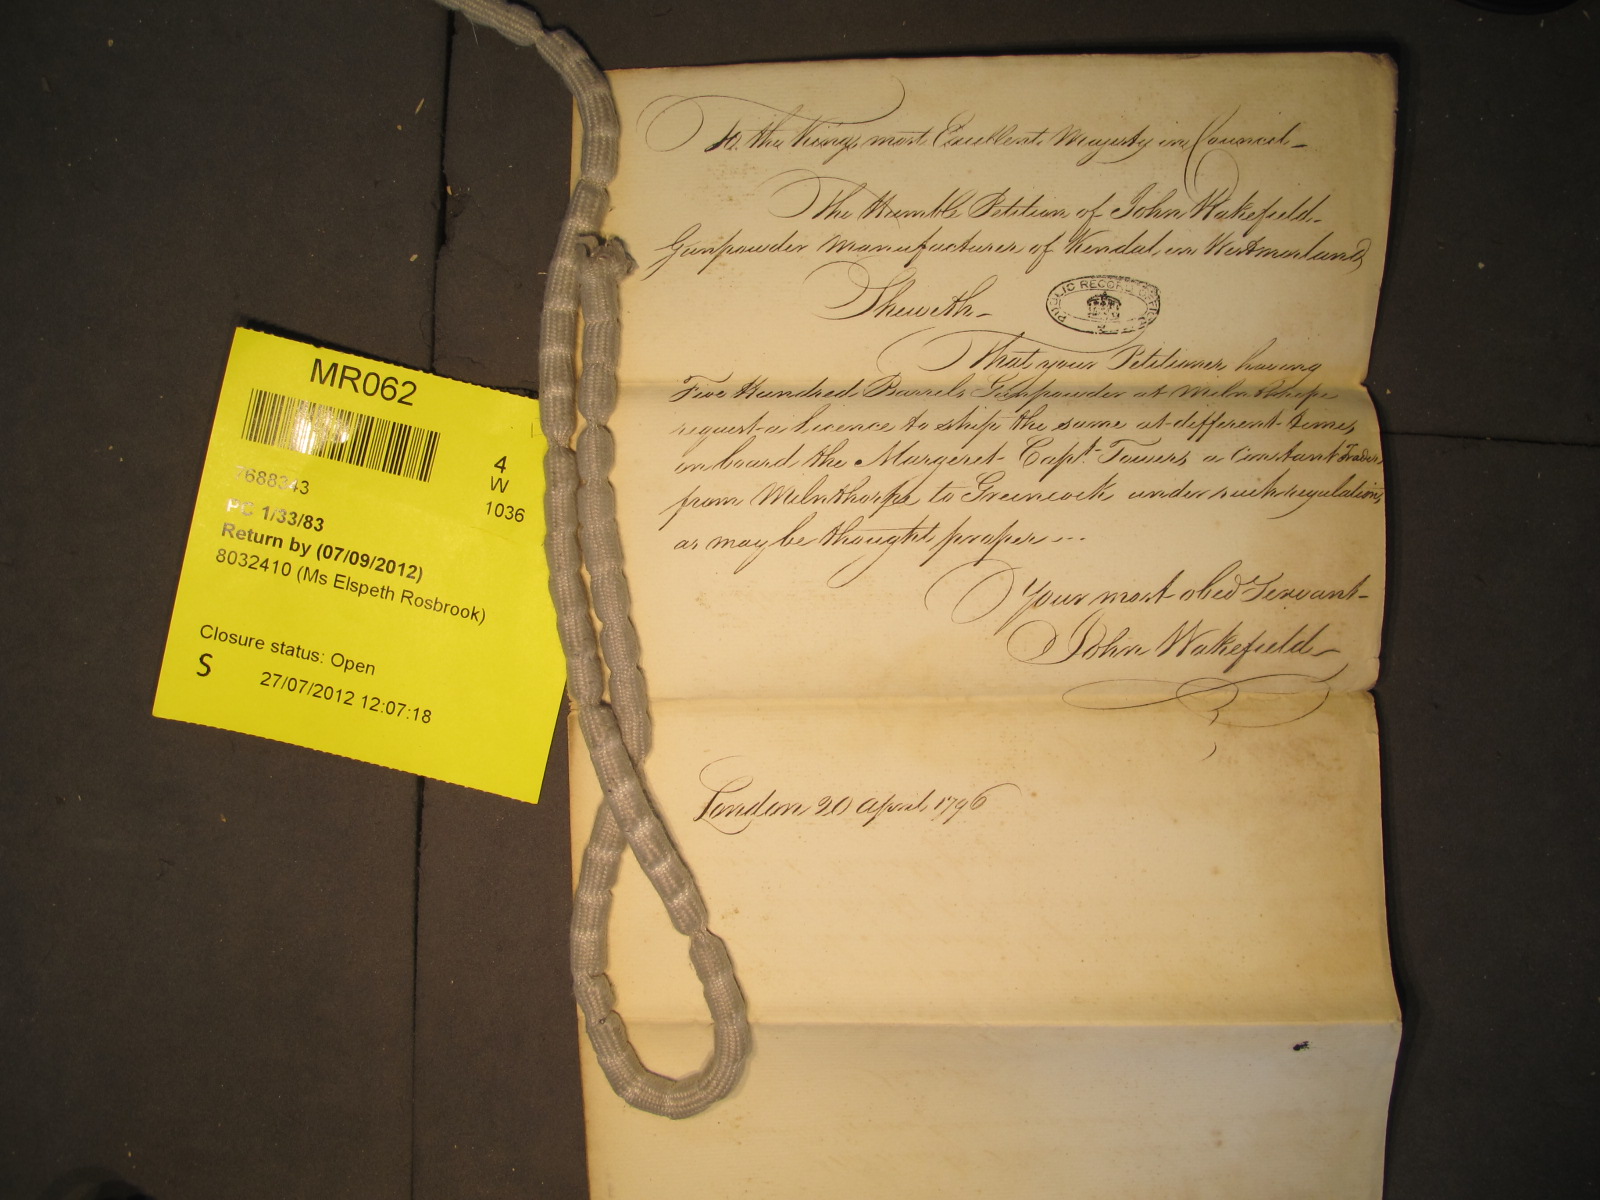 To the Kings most Excellent Majesty in Council
The Humble Petition of John Wakefield
Gunpowder Manufacturer of Kendal in Westmorland
Sheweth
PUBLIC RECORD OFFICE
That your Petitioner having
Five Hundred Barrels Gunpowder at Milnthorpe
request a Licence to ship the same at different times
on board the Margeret Capt. Towers a Constant Trader
from Milnthorpe to Greenock under such regulations
as may be thought proper...
Your most obed Servant
John Wakefield
London 20 April 1796
MR062
7688343
4
W
1036
PC 1/33/83
Return by (07/09/2012)
8032410 (Ms Elspeth Rosbrook)
Closure status: Open
S
27/07/2012 12:07:18